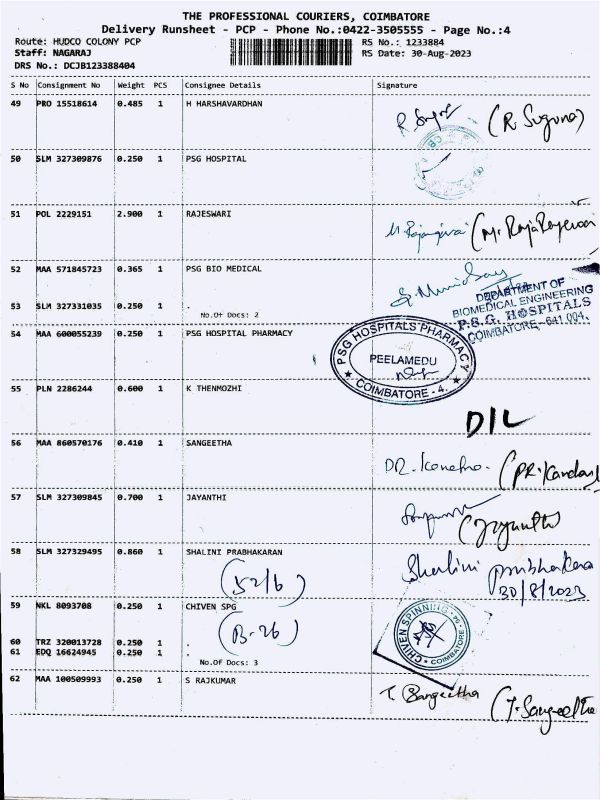 THE PROFESSIONAL COURIERS, COIMBATORE
Delivery Runsheet - PCP - Phone No.:0422-3505555 - Page No.:4
Route: HUDCO COLONY PCP RS No.: 1233884
Staff: NAGARAJ RS Date: 30-Aug-2023
DRS No.: DCJB123388404
S No Consignment No Weight PCS Consignee Details Signature
49 PRO 15518614 0.485 1 H HARSHAVARDHAN
(R. Suguna)
50 SLM 327309876 0.250 1 PSG HOSPITAL
51 POL 2229151 2.900 1 RAJESWARI
52 MAA 571845723 0.365 1 PSG BIO MEDICAL
DEPARTMENT OF
BIOMEDICAL ENGINEERING
P.S.G. HOSPITALS
COIMBATORE-641 004.
53 SLM 327331035 0.250 1 .
No.Of Docs: 2
54 MAA 600055239 0.250 1 PSG HOSPITAL PHARMACY
PSG HOSPITALS PHARMACY
PEELAMEDU
COIMBATORE - 4.
55 PLN 2286244 0.600 1 K THENMOZHI
D/L
56 MAA 860570176 0.410 1 SANGEETHA
57 SLM 327309845 0.700 1 JAYANTHI
(Jayanthi)
58 SLM 327329495 0.860 1 SHALINI PRABHAKARAN
(52/6)
Shalini Prabhakara
30/8/2023
59 NKL 8093708 0.250 1 CHIVEN SPG
(B-26)
CHIVEN SPINNING
COIMBATORE
60 TRZ 320013728 0.250 1 .
61 EDQ 16624945 0.250 1 .
No.Of Docs: 3
62 MAA 100509993 0.250 1 S RAJKUMAR
T. Sangeetha (T. Sangeetha